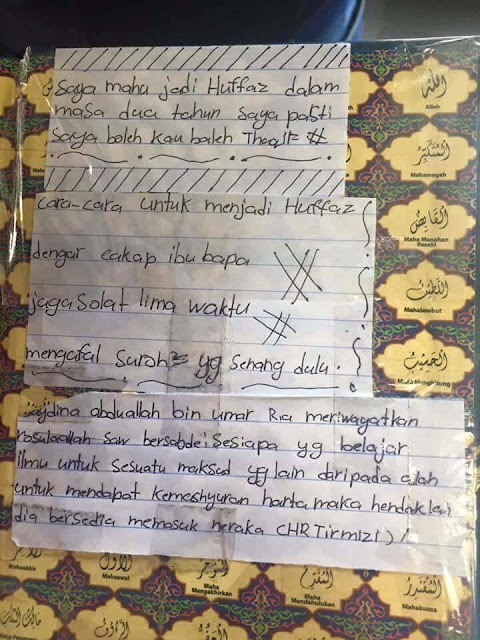 Saya mahu jedi Huffaz dalam
masa dua tahun saya pasti
saya boleh kau boleh Thoqif #
cara-cara untuk menjadi Huffaz
dengar cakap ibu bapa
jaga Solat lima waktu
mengafal Surah² yg senang dulu.
Sajdina abduallah bin umar Ra meriwayatkan
rosulaallah saw bersabde: Sesiapa yg belajar
ilmu untuk sesuatu maksud yg lain daripada allah
untuk mendapat kemeshyuran harta maka hendaklai
dia bersedia memasuk neraka (HR Tirmizi)
الله
Allah
المتكبر
Mahamegah
القابض
Maha Menahan
Rezeki
اللطيف
Mahalembut
الحسيب
Maha Menghitung
الآخر
Mahaakhir
الأول
Mahaawal
المؤخر
Maha
Mengakhirkan
المقدم
Maha
Mendahulukan
المقتدر
Mahakuasa
مالك الملك
الرؤوف
العفو